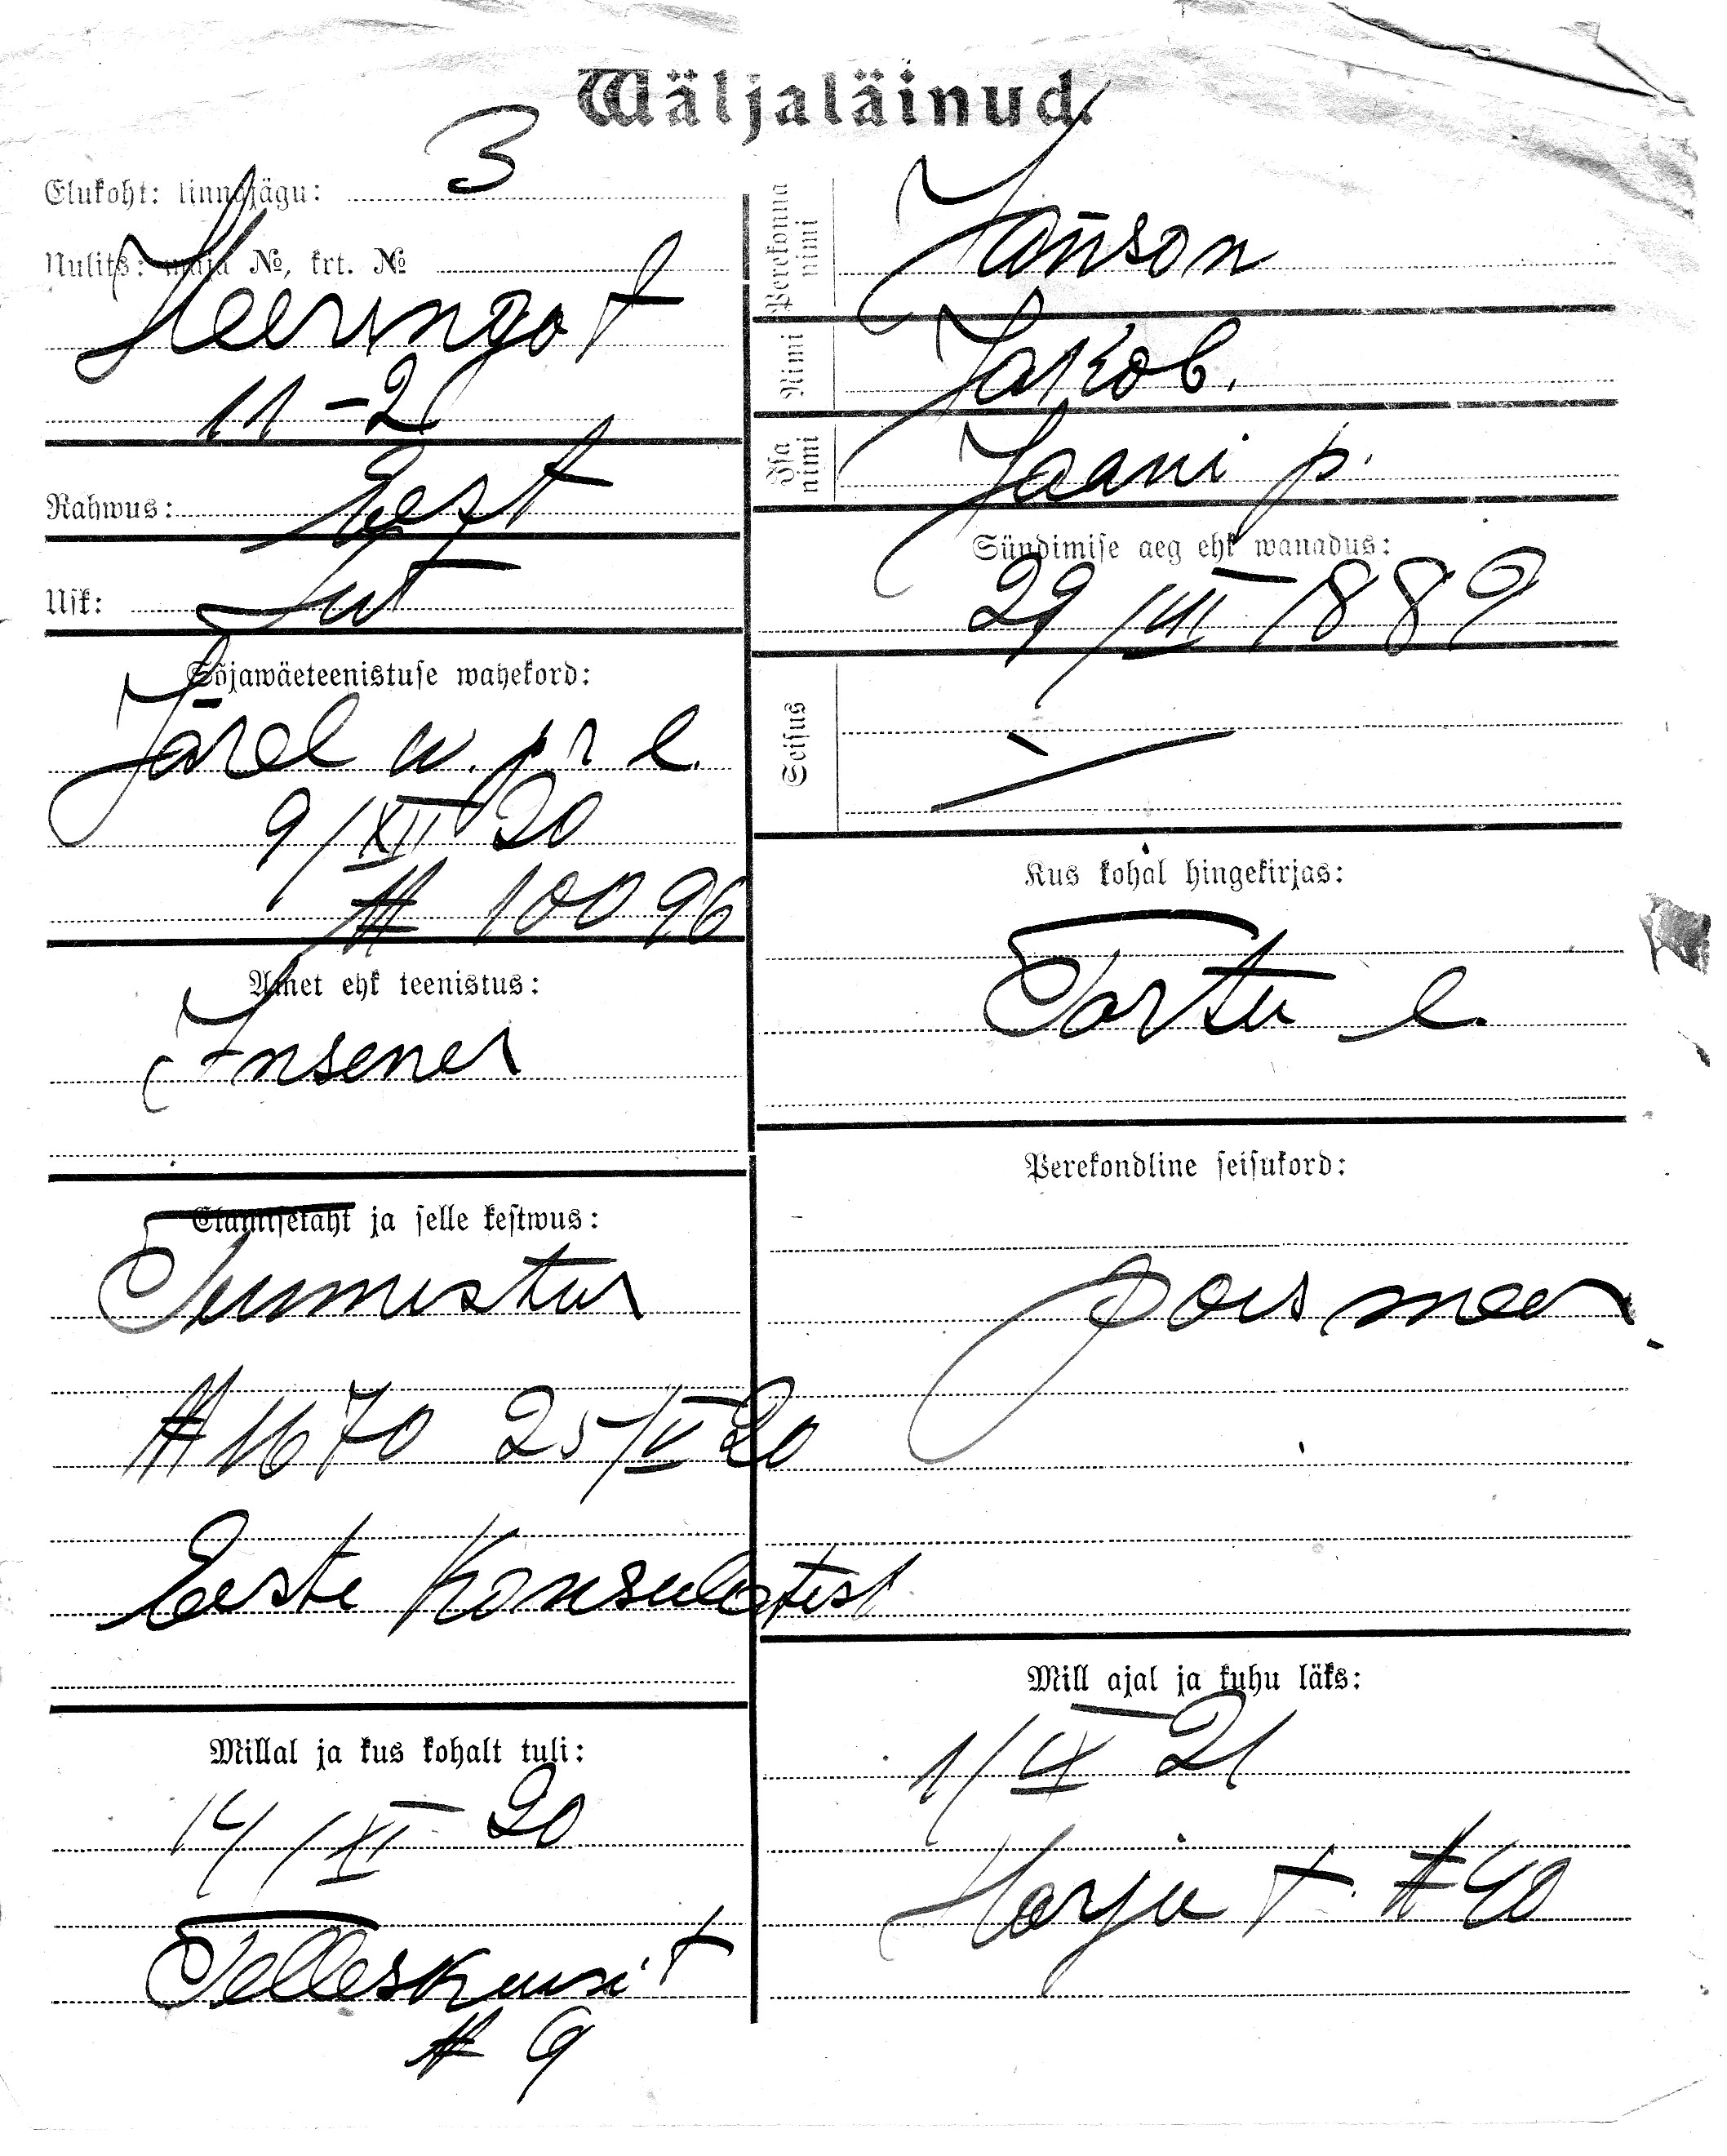 Wäljaläinud.
Elukoht: linnajägu: 3
Uulits: maja №, krt. №
Heeringa t
11-2
Rahwus: Eest
Usk: Lut
Sõjawäeteenistuse wahekord:
Järel w. pr l.
9/XII 20
№ 10096
Amet ehk teenistus:
Insener
Elamisetäht ja selle kestwus:
Tunnistus
№ 1670 25/V 20
Eesti Konsulatist
Millal ja kus kohalt tuli:
14/XI 20
Telleskiwi t
№ 9
Perekonna nimi Jänson
Nimi Jakob.
Isa nimi Jaani p.
Sündimise aeg ehk wanadus:
29/VIII 1889
Seisus
Kus kohal hingekirjas:
Tartu l.
Perekondline seisukord:
poismees.
Mill ajal ja kuhu läks:
1/IX 21
Harju t. № 40